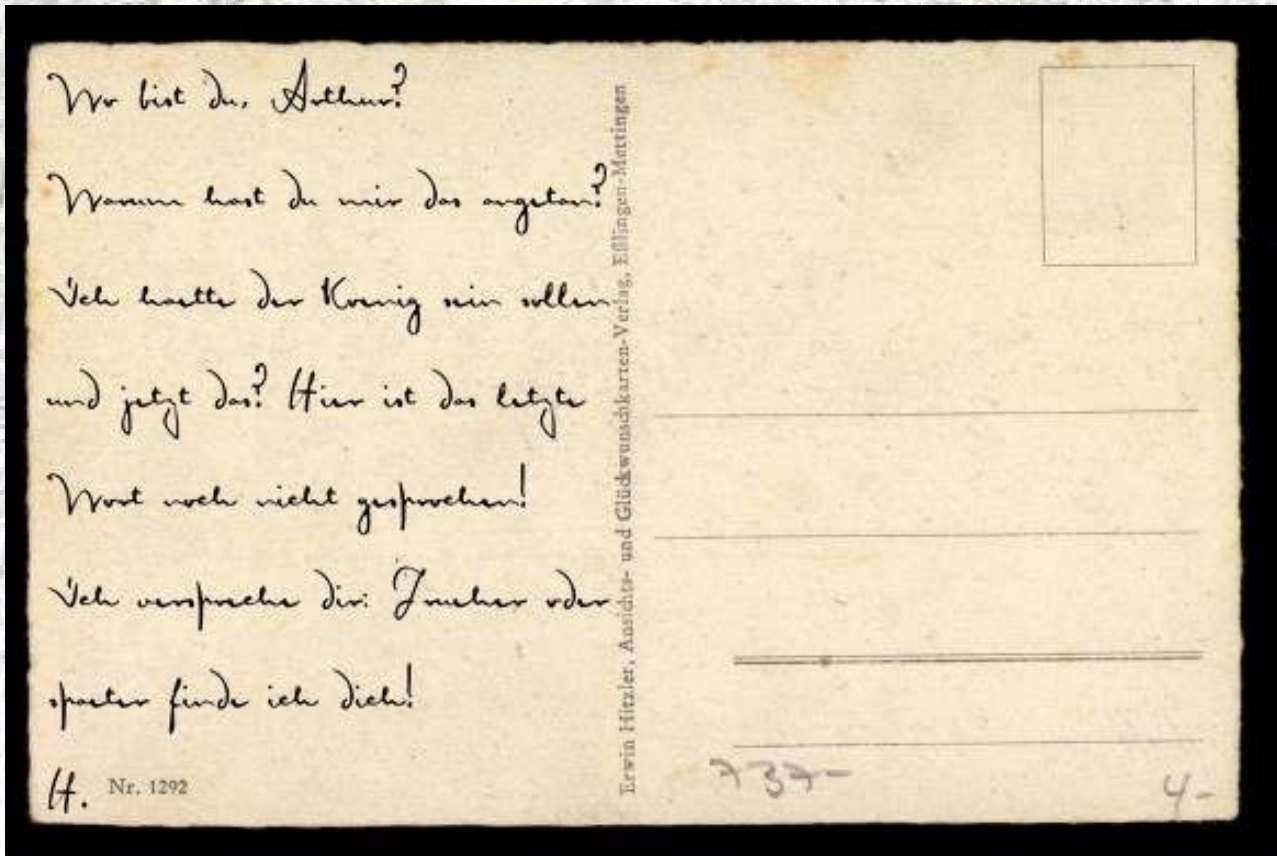 Wo bist du, Arthur?
Warum hast du mir das angetan?
Ich haette der Koenig sein sollen
und jetzt das? Hier ist das letzte
Wort noch nicht gesprochen!
Ich verspreche dir: Frueher oder
spaeter finde ich dich!
H.
Nr. 1292
Erwin Hitzler, Ansichts- und Glückwunschkarten-Verlag, Eßlingen-Mettingen
737-
4-